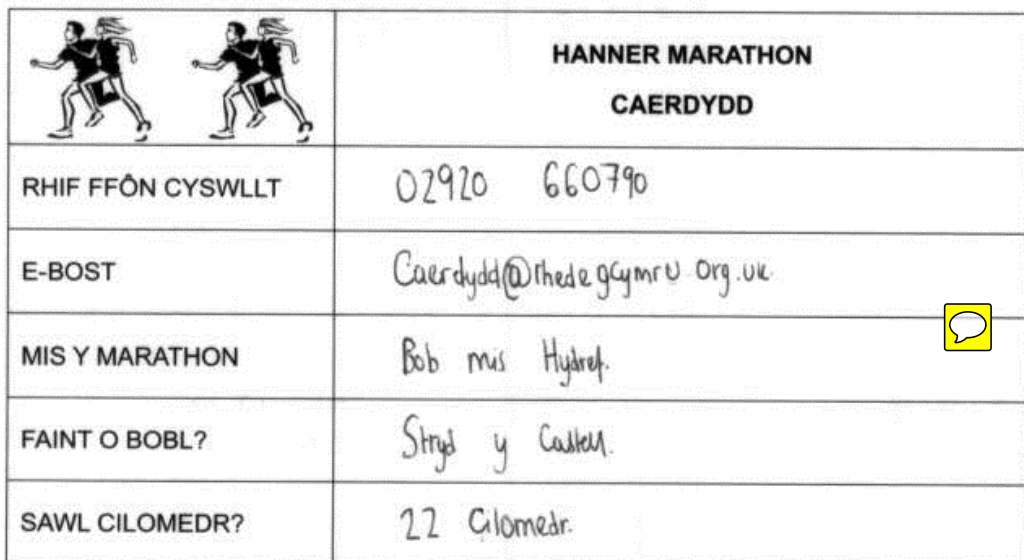 HANNER MARATHON
CAERDYDD
RHIF FFÔN CYSWLLT 02920 660790
E-BOST Caerdydd@rhedegcymru org.uk
MIS Y MARATHON Bob mis Hydref.
FAINT O BOBL? Stryd y Castell.
SAWL CILOMEDR? 22 Cilomedr.